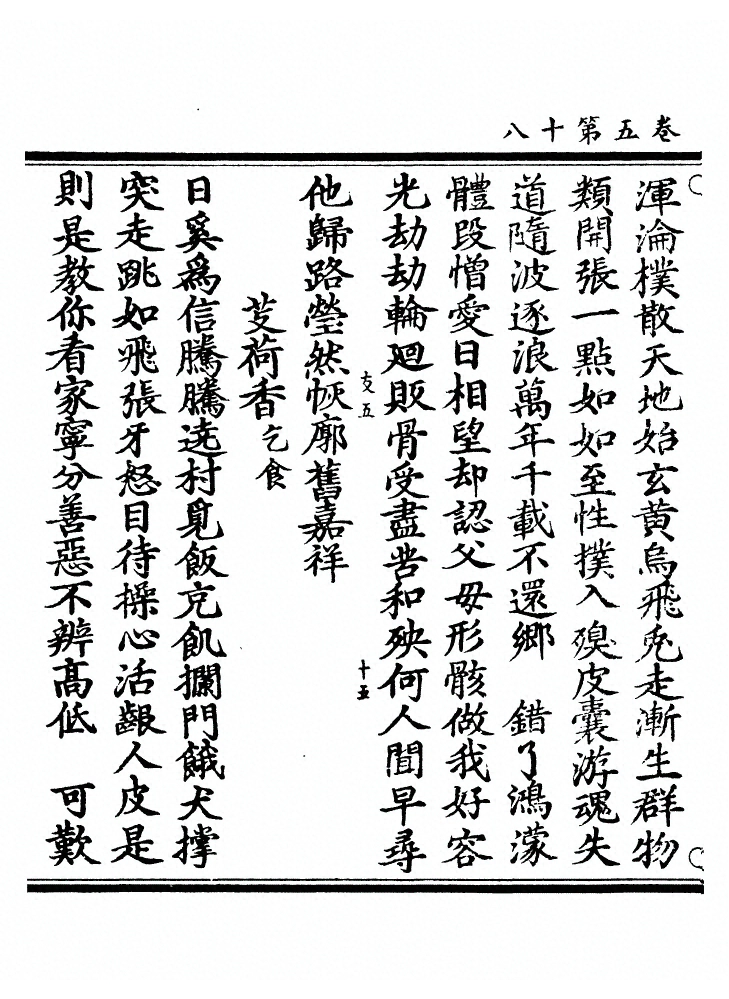 卷五第十八
渾淪樸散天地始玄黃烏飛兎走漸生群物
類開張一點如如至性撲入𦤀皮囊游魂失
道隨波逐浪萬年千載不還鄉　錯了鴻濛
體段憎愛日相望却認父母形骸做我好容
光劫劫輪廻販骨受盡苦和殃何人聞早尋
支五
十五
他歸路瑩然恢廓舊嘉祥
芰荷香乞食
日奚爲信騰騰遶村覓飯充飢攔門餓犬撑
突走跳如飛張牙怒目待操心活齦人皮是
則是教你看家寧分善惡不辨高低　可歎